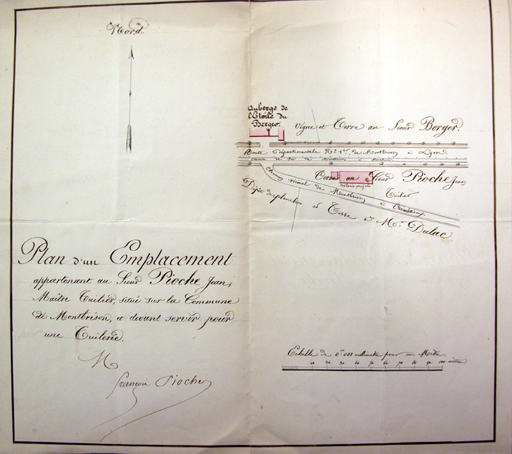 Nord.
Auberge de
l'Etoile du
Berger.
Vigne et Terre au Sieur Berger.
Route Départementale N° 1er de Montbrison à Lyon
Terre au Sieur Pioche Jean
Tuilier
Chemin vicinal de Montbrison à
Terre à Mr Dulac
Plan d'un Emplacement
appartenant au Sieur Pioche Jean,
Maître Tuilier, situé sur la Commune
de Montbrison, et devant servir pour
une Tuilerie.
françois Pioche
Echelle de pour un Mètre